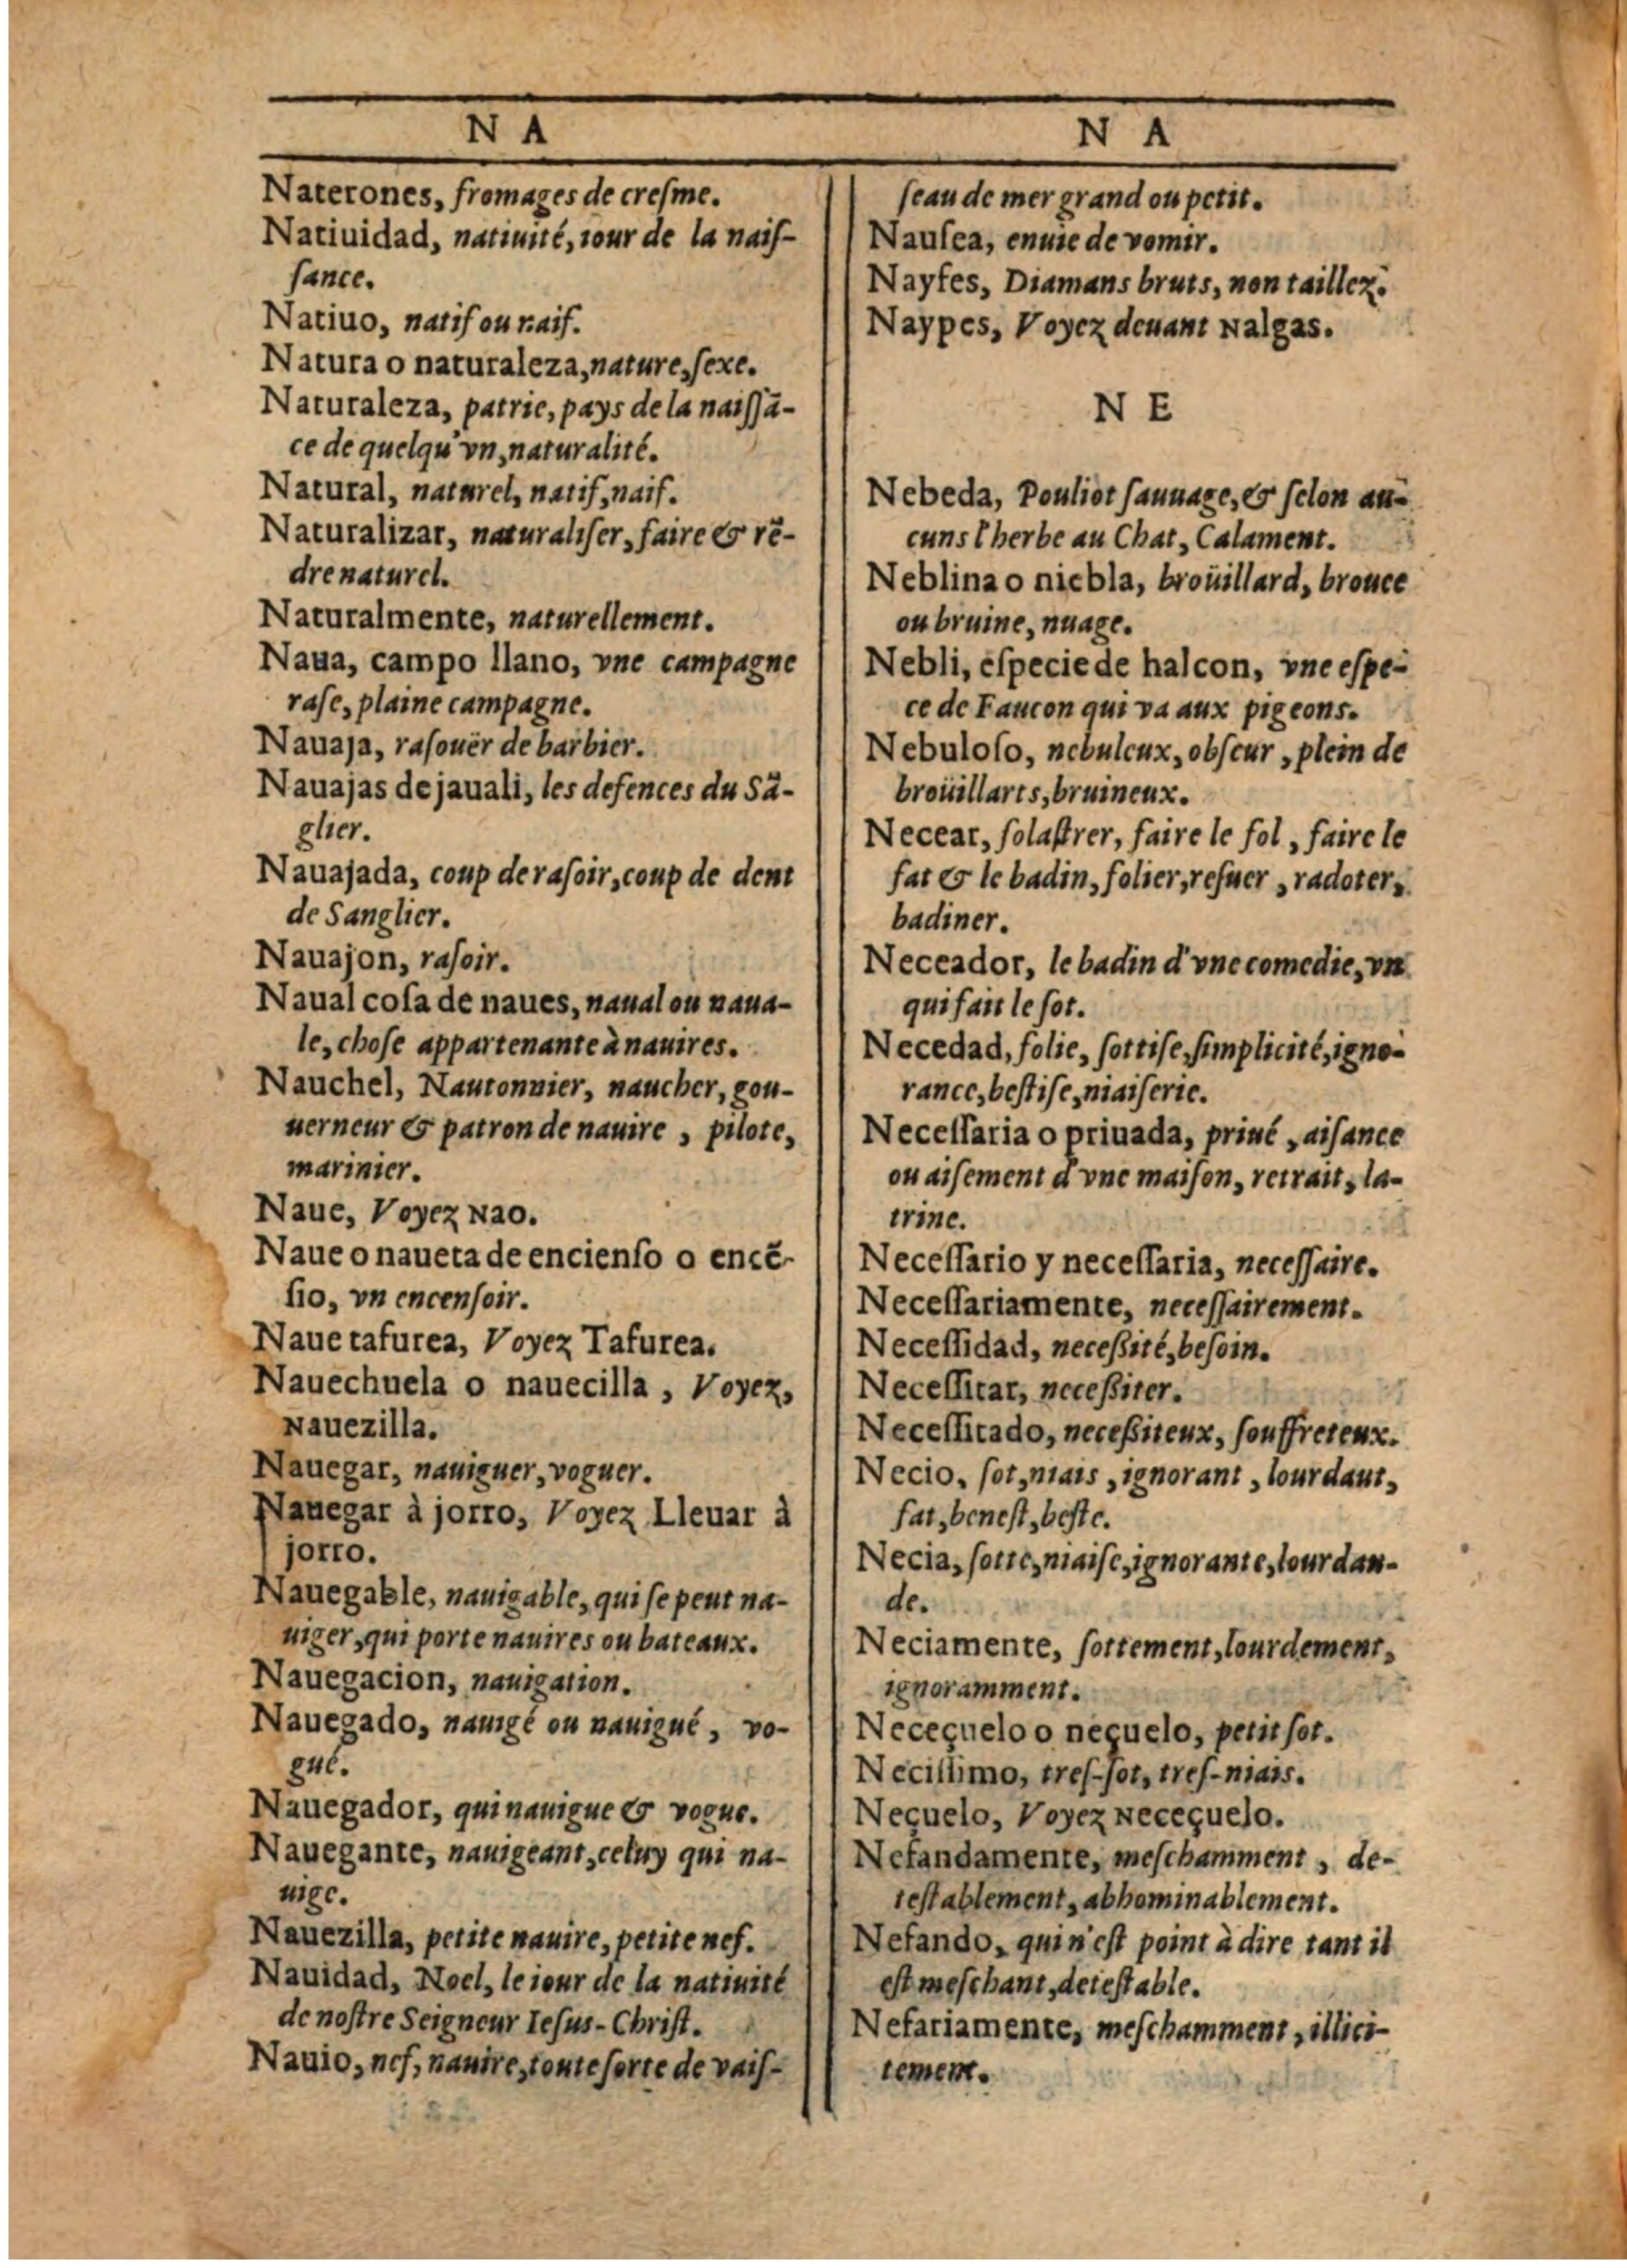 N A
Naterones, fromages de creſme.
Natiuidad, natiuité, iour de la naiſ-
ſance.
Natiuo, natif ou naif.
Natura o naturaleza, nature, ſexe.
Naturaleza, patrie, pays de la naiſſã-
ce de quelqu'vn, naturalité.
Natural, naturel, natif, naif.
Naturalizar, naturaliſer, faire & rẽ-
dre naturel.
Naturalmente, naturellement.
Naua, campo llano, vne campagne
raſe, plaine campagne.
Nauaja, raſouër de barbier.
Nauajas de jauali, les defences du Sã-
glier.
Nauajada, coup de raſoir, coup de dent
de Sanglier.
Nauajon, raſoir.
Naual coſa de naues, naual ou naua-
le, choſe appartenante à nauires.
Nauchel, Nautonnier, naucher, gou-
uerneur & patron de nauire, pilote,
marinier.
Naue, Voyez Nao.
Naue o naueta de encienſo o encẽ-
ſio, vn encenſoir.
Naue tafurea, Voyez Tafurea.
Nauechuela o nauecilla, Voyez,
Nauezilla.
Nauegar, nauiguer, voguer.
Nauegar à jorro, Voyez Lleuar à
jorro.
Nauegable, nauigable, qui ſe peut na-
uiger, qui porte nauires ou bateaux.
Nauegacion, nauigation.
Nauegado, nauigé ou nauigué, vo-
gué.
Nauegador, qui nauigue & vogue.
Nauegante, nauigeant, celuy qui na-
uige.
Nauezilla, petite nauire, petite nef.
Nauidad, Noel, le iour de la natiuité
de noſtre Seigneur Ieſus-Chriſt.
Nauio, nef, nauire, toute ſorte de vaiſ-
N A
ſeau de mer grand ou petit.
Nauſea, enuie de vomir.
Nayfes, Diamans bruts, non taillez.
Naypes, Voyez deuant Nalgas.
N E
Nebeda, Pouliot ſauuage, & ſelon au-
cuns l'herbe au Chat, Calament.
Neblina o niebla, broüillard, brouee
ou bruine, nuage.
Nebli, eſpecie de halcon, vne eſpe-
ce de Faucon qui va aux pigeons.
Nebuloſo, nebuleux, obſcur, plein de
broüillarts, bruineux.
Necear, folaſtrer, faire le fol, faire le
fat & le badin, folier, reſuer, radoter,
badiner.
Neceador, le badin d'vne comedie, vn
qui fait le ſot.
Necedad, folie, ſottiſe, ſimplicité, igno-
rance, beſtiſe, niaiſerie.
Neceſſaria o priuada, priué, aiſance
ou aiſement d'vne maiſon, retrait, la-
trine.
Neceſſario y neceſſaria, neceſſaire.
Neceſſariamente, neceſſairement.
Neceſſidad, neceßité, beſoin.
Neceſſitar, neceßiter.
Neceſſitado, neceßiteux, ſouffreteux.
Necio, ſot, niais, ignorant, lourdaut,
fat, beneſt, beſte.
Necia, ſotte, niaiſe, ignorante, lourdau-
de.
Neciamente, ſottement, lourdement,
ignoramment.
Neceçuelo o neçuelo, petit ſot.
Neciſſimo, treſ-ſot, treſ-niais.
Neçuelo, Voyez Neceçuelo.
Nefandamente, meſchamment, de-
teſtablement, abhominablement.
Nefando, qui n'eſt point à dire tant il
eſt meſchant, deteſtable.
Nefariamente, meſchamment, illici-
tement.